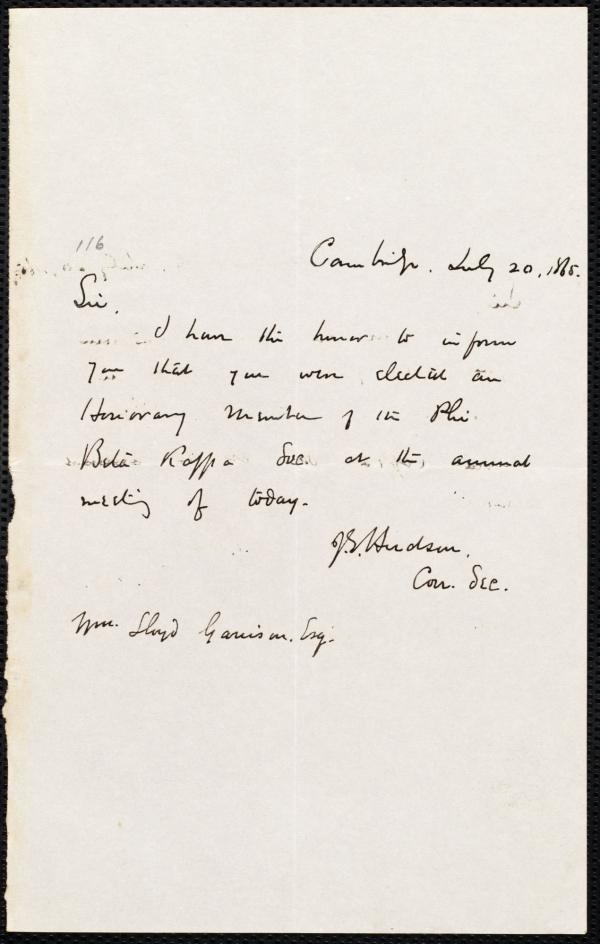 116
Cambridge. July 20, 1865.
Sir,
I have the honor to inform
you that you were elected an
Honorary Member of the Phi
Beta Kappa Soc. at the annual
meeting of today.
Hudson.
Cor. Sec.
Wm. Lloyd Garrison. Esq.